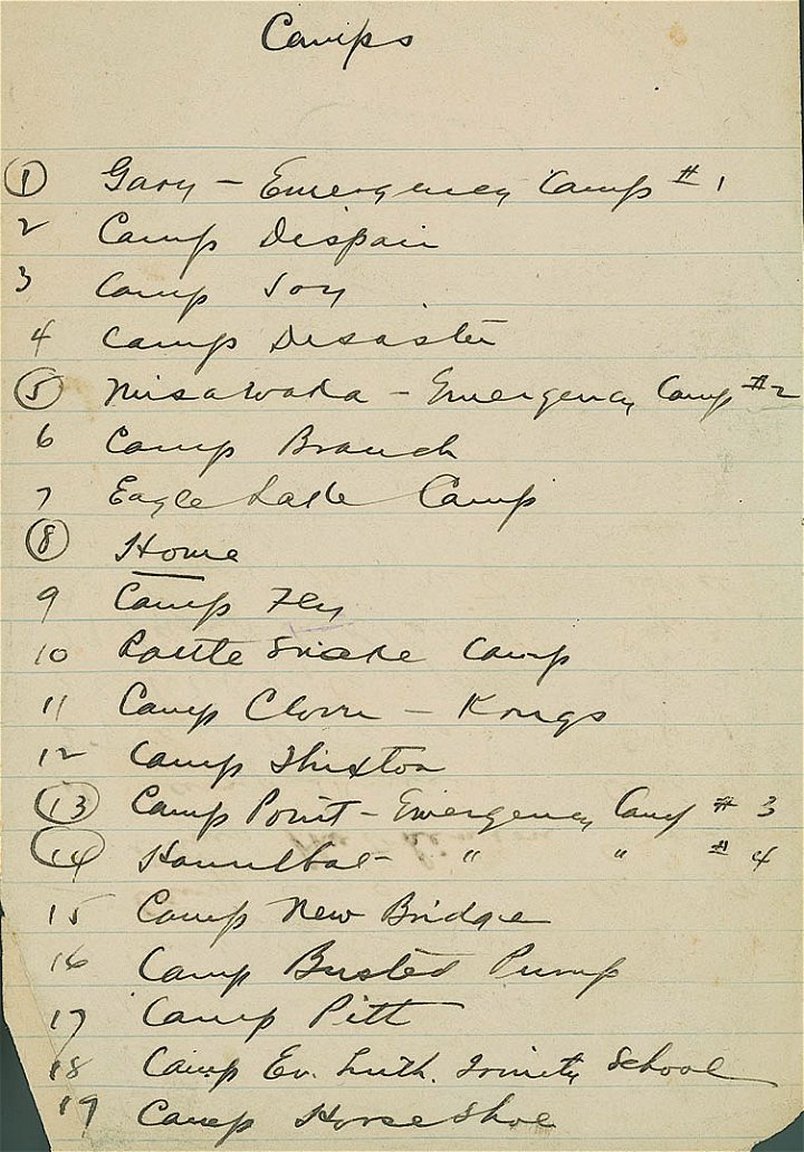 Camps
1 Gary - Emergency Camp # 1
2 Camp Dispair
3 Camp Joy
4 Camp Disaster
5 Misawaka - Emergency Camp # 2
6 Camp Branch
7 Eagle Lake Camp
8 Home
9 Camp Fly
10 Rattle Snake Camp
11 Camp - Kongs
12 Camp
13 Camp Point - Emergency Camp # 3
14 Hannibal - " " # 4
15 Camp New Bridge
16 Camp Busted Pump
17 Camp Pitt
18 Camp Ev. Luth. Trinity School
19 Camp Horse Shoe